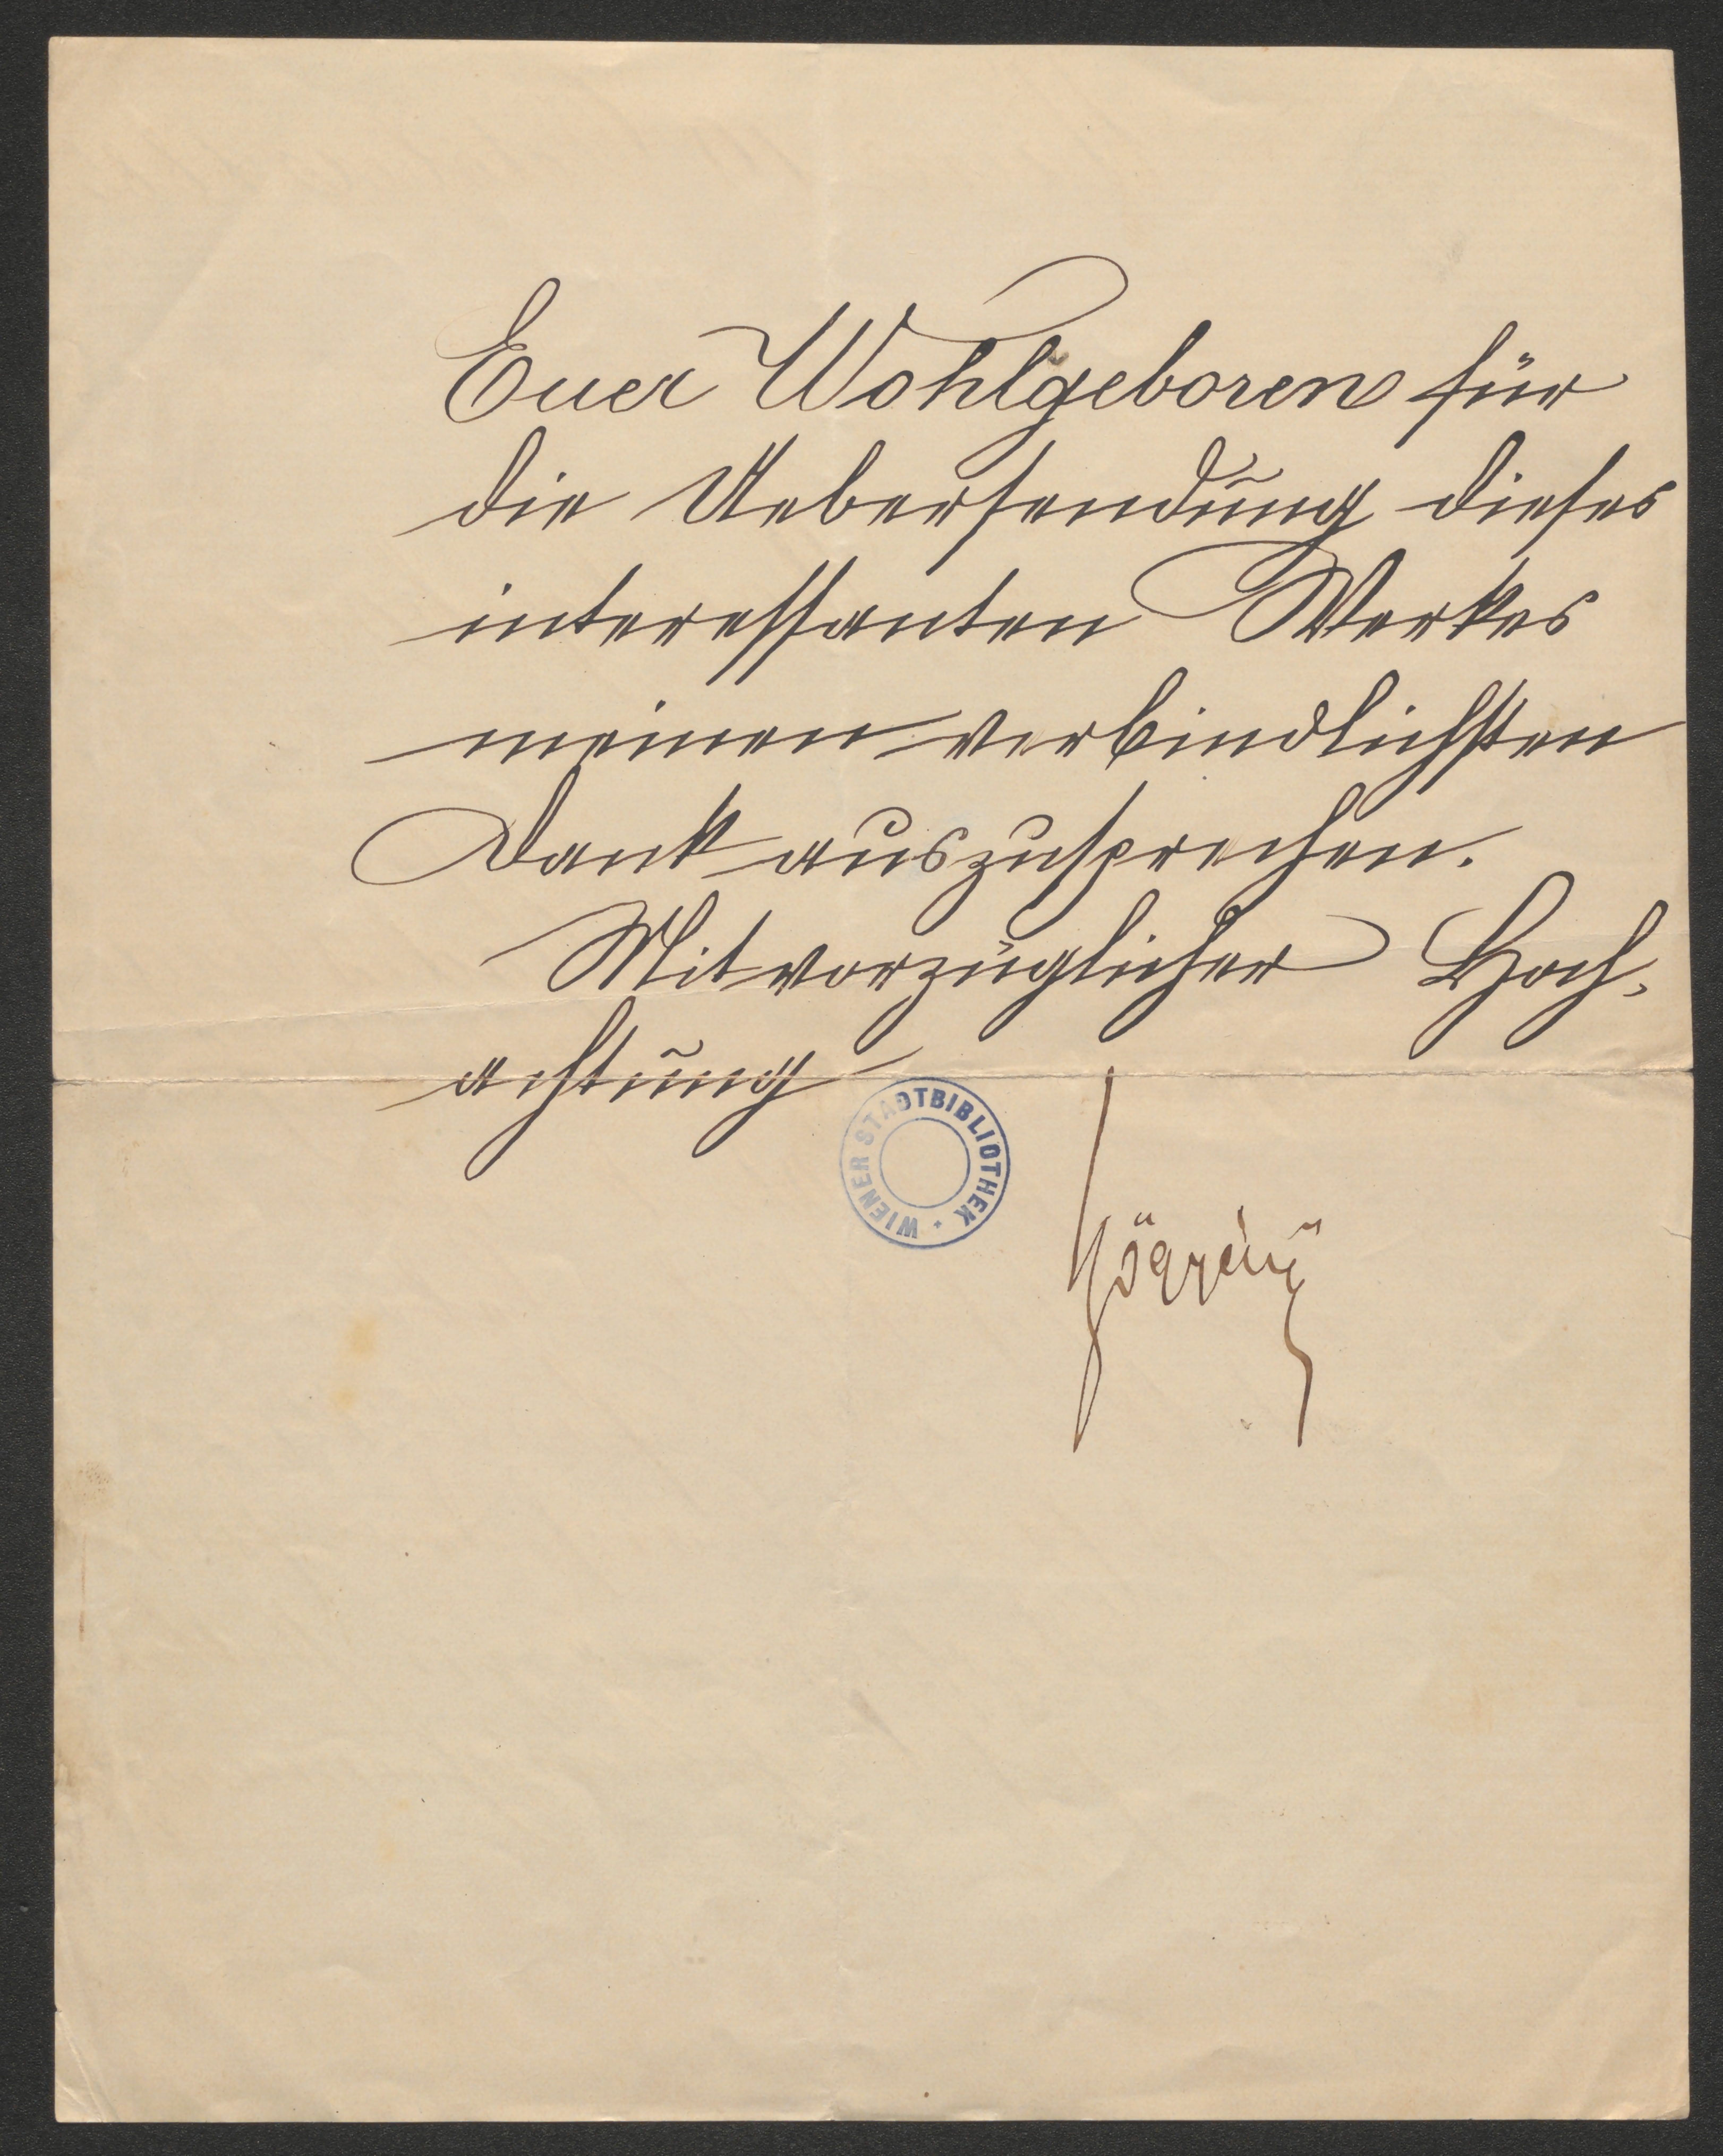 Euer Wohlgeboren für
die Uebersendung dieses
interessanten Werkes
meinen verbindlichsten
Dank auszusprechen.
Mit vorzüglicher Hoch-
achtung
WIENER STADTBIBLIOTHEK